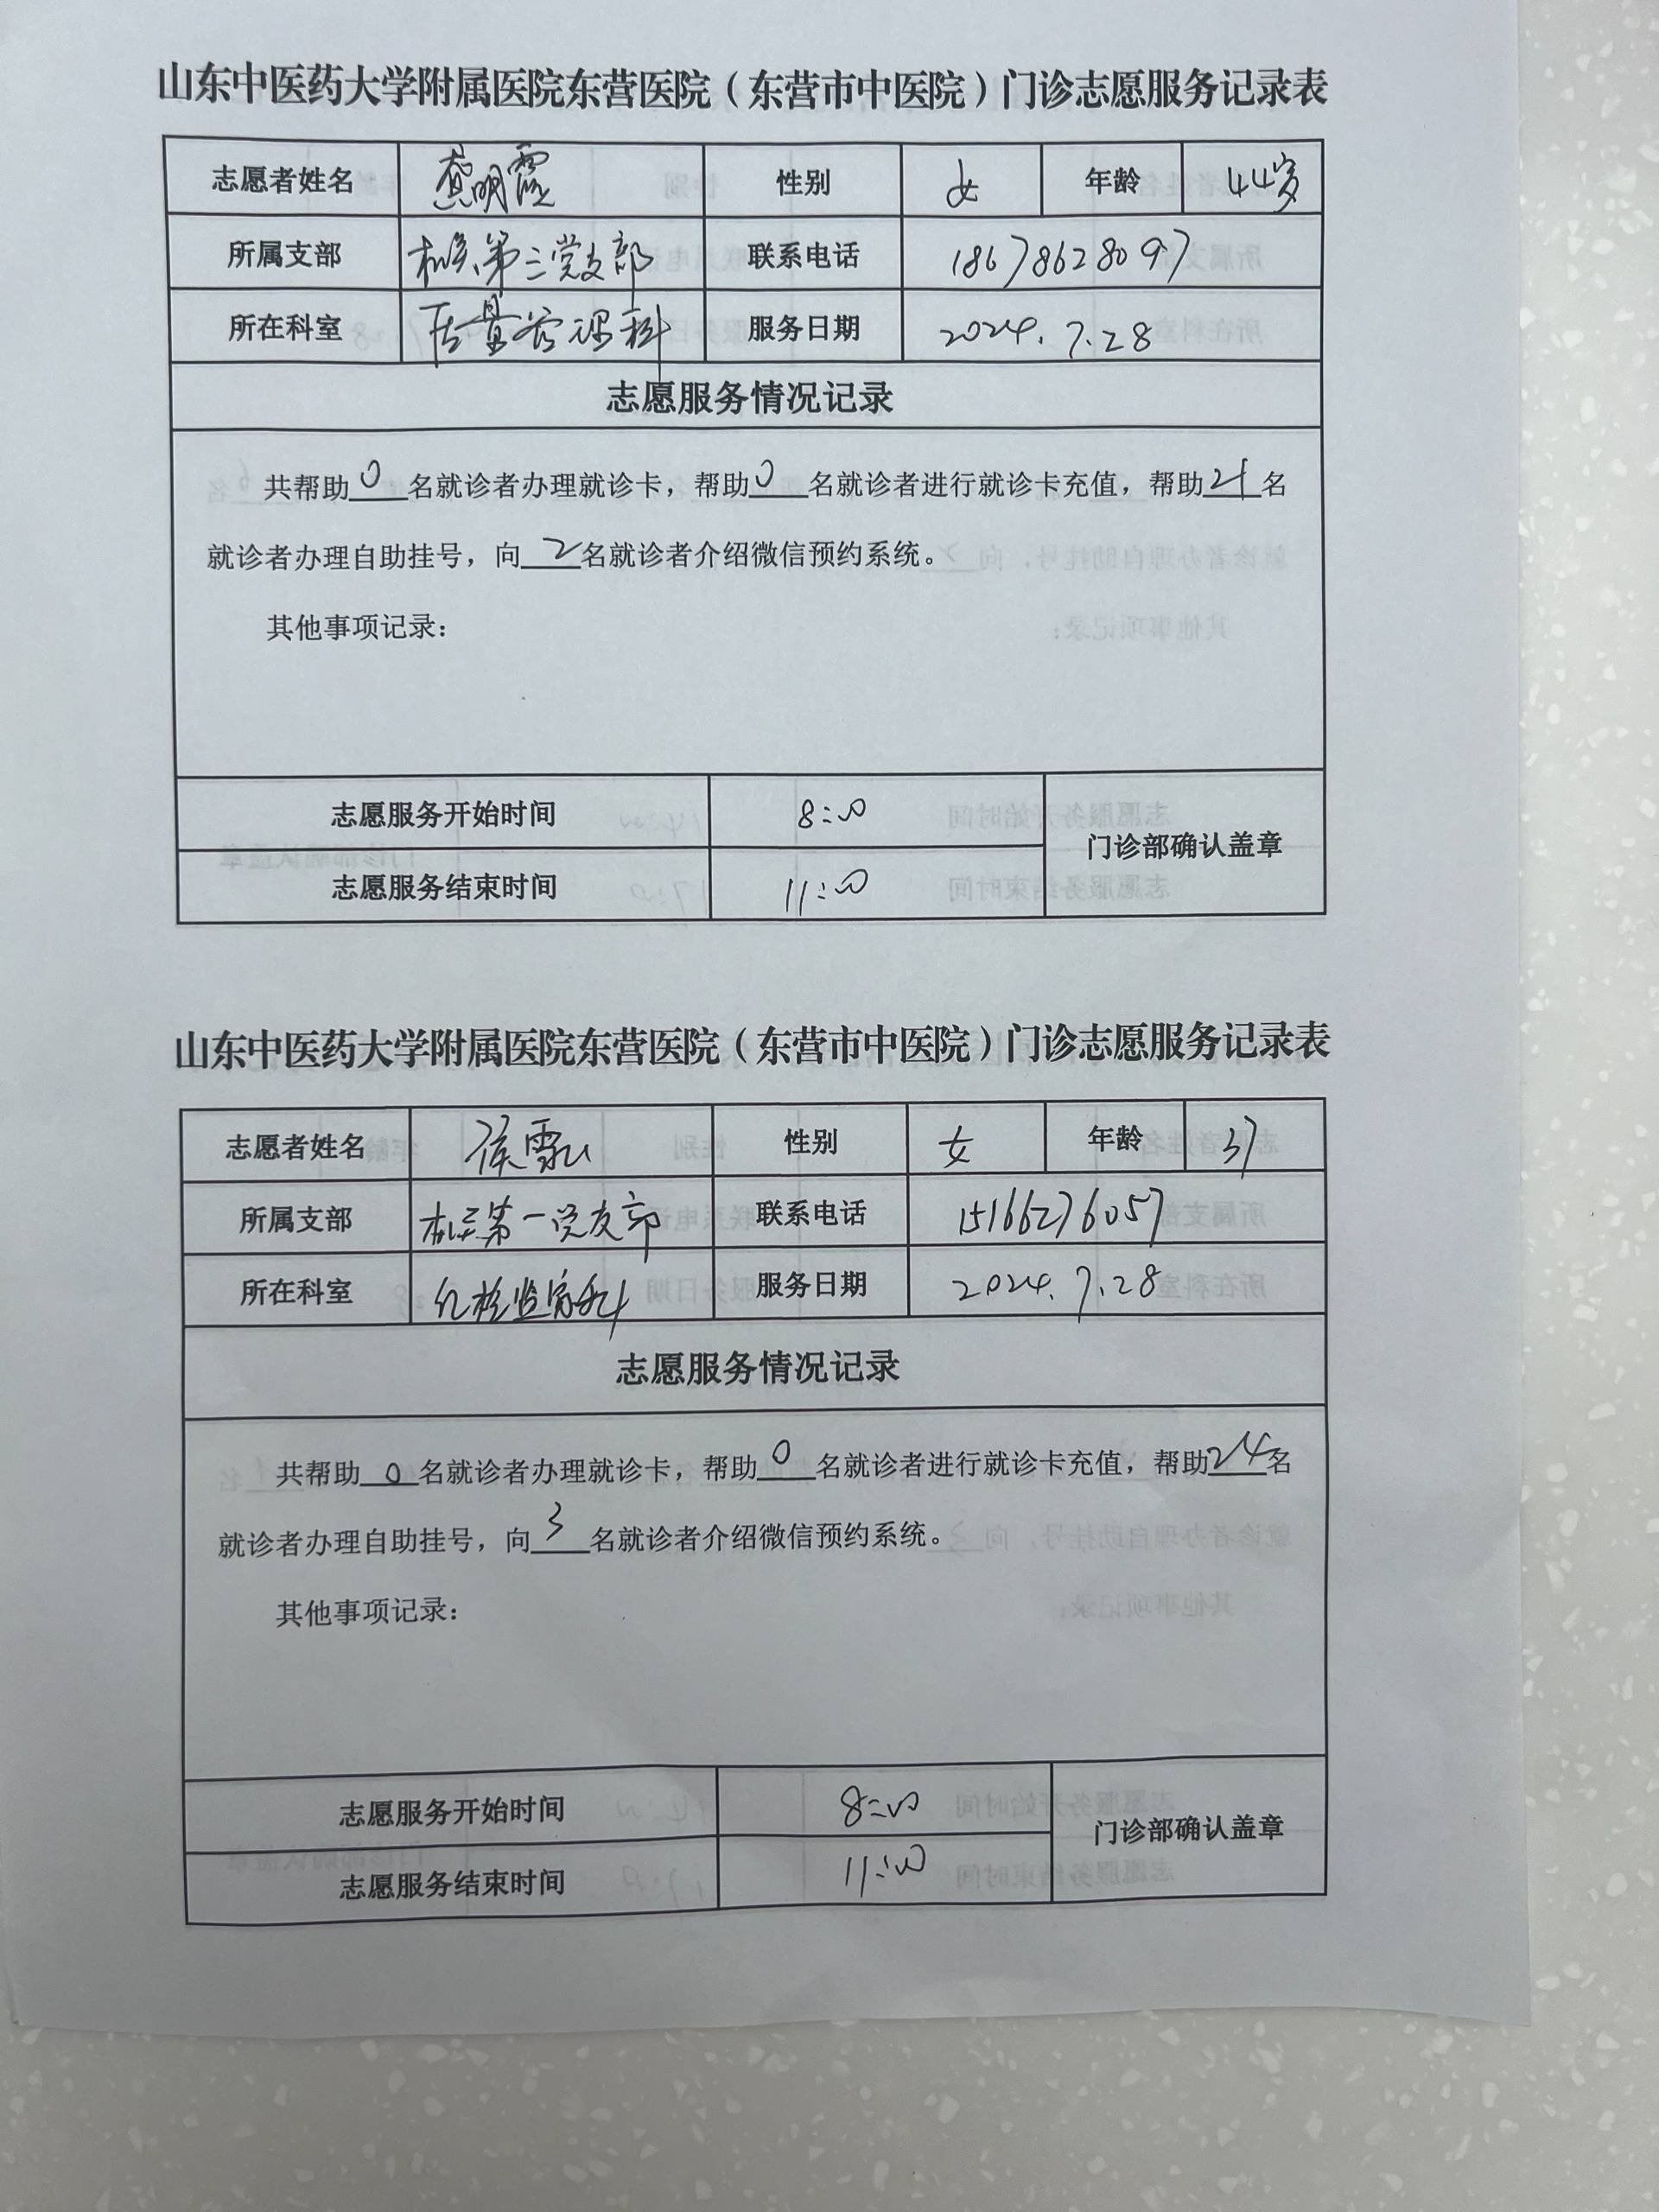 山东中医药大学附属医院东营医院（东营市中医院）门诊志愿服务记录表
志愿者姓名 龚明霞 性别 女 年龄 44岁
所属支部 机关第三党支部 联系电话 18678628097
所在科室 质量管理科 服务日期 2024.7.28
志愿服务情况记录
共帮助0名就诊者办理就诊卡，帮助0名就诊者进行就诊卡充值，帮助21名
就诊者办理自助挂号，向2名就诊者介绍微信预约系统。
其他事项记录：
志愿服务开始时间 8:00
门诊部确认盖章
志愿服务结束时间 11:00
山东中医药大学附属医院东营医院（东营市中医院）门诊志愿服务记录表
志愿者姓名 侯 性别 女 年龄 37
所属支部 机关第一党支部 联系电话 15166276057
所在科室 纪检监察科 服务日期 2024.7.28
志愿服务情况记录
共帮助0名就诊者办理就诊卡，帮助0名就诊者进行就诊卡充值，帮助24名
就诊者办理自助挂号，向3名就诊者介绍微信预约系统。
其他事项记录：
志愿服务开始时间 8:00
门诊部确认盖章
志愿服务结束时间 11:00